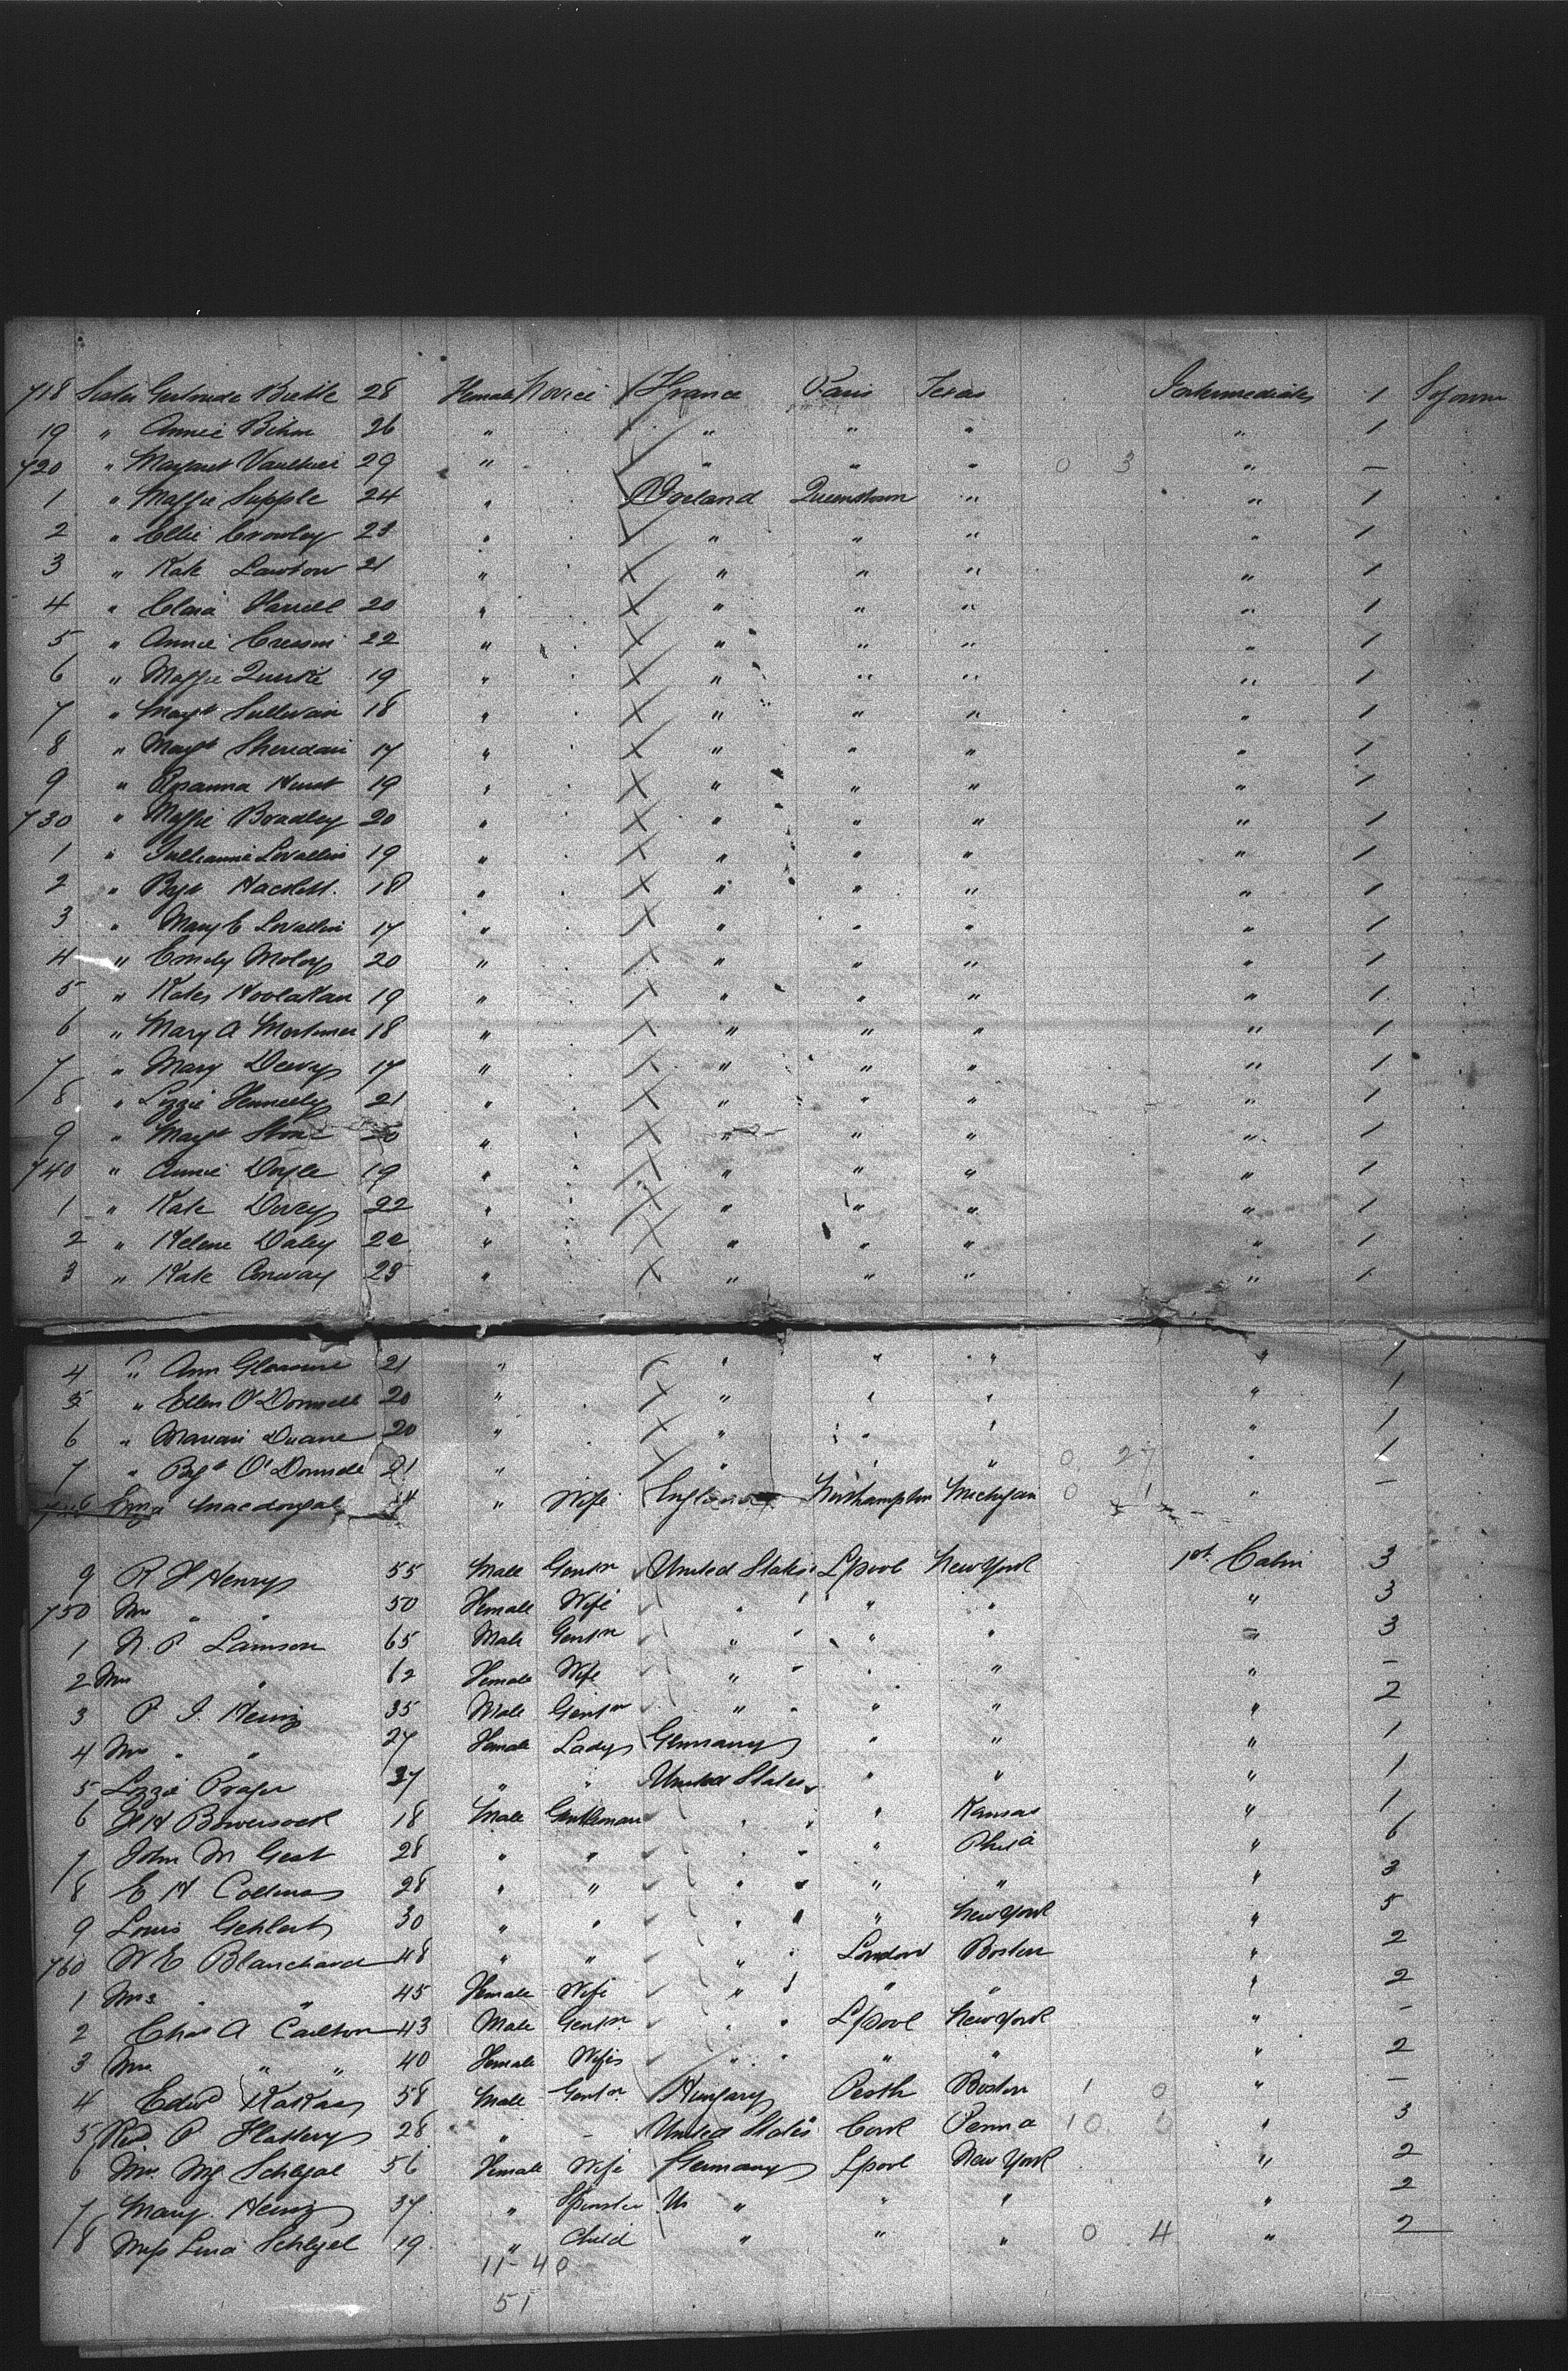 718 Sister Gertrude 28 Female Novice France Paris Texas Intermediates 1 Sojourn
19 " Annie Bihm 26 " " " " " 1
720 " Margaret 29 " " " " 0 3 " —
1 " Maggie Supple 24 " Ireland Queenstown " " 1
2 " Ellie Crowley 23 " " " " " 1
3 " Kate Lawton 21 " " " " " 1
4 " Clara 20 " " " " " 1
5 " Annie 22 " " " " " 1
6 " Maggie Quirke 19 " " " " " 1
7 " Margt Sullivan 18 " " " " " 1
8 " Margt Sheridan 17 " " " " " 1
9 " Rosanna Hurst 19 " " " " " 1
730 " Maggie Bradley 20 " " " " " 1
1 " Levallin 19 " " " " " 1
2 " Bgt Hackett 18 " " " " " 1
3 " Mary E Levallin 17 " " " " " 1
4 " Emily Moloy 20 " " " " " 1
5 " Kate Hoolahan 19 " " " " " 1
6 " Mary A Mortimer 18 " " " " " 1
7 " Mary Dervy 17 " " " " " 1
8 " Lizzie Fennelly 21 " " " " " 1
9 " Margt 20 " " " " " 1
740 " Annie Doyle 19 " " " " " 1
1 " Kate 22 " " " " " 1
2 " Helene Daley 22 " " " " " 1
3 " Kate Conway 23 " " " " " 1
4 " Ann 21 " " " " " 1
5 " Ellen O'Donnell 20 " " " " " 1
6 " Duane 20 " " " " " 1
7 " Bgt O'Donnell 21 " " " " 0 27 " 1
Macdougal " Wife England Northampton Michigan 0 1 " —
9 R H Henry 55 Male Gentn United States Lpool New York 1st Cabin 3
750 Mrs " " 50 Female Wife " " " " 3
1 N. P. Lamson 65 Male Gentn " " " " 3
2 Mrs " 62 Female Wife " " " " —
3 P. J. Heinz 35 Male Gentn " " " " 2
4 Mrs " " 27 Female Lady Germany " " " 1
5 Lizzie Prager 27 " " United States " " " 1
6 J H Bowersock 18 Male Gentleman " " Kansas " 1
7 John M Gest 28 " " " " Phila " 6
8 E H Collins 28 " " " " " " 3
9 Louis Gehlert 30 " " " " New York " 5
760 W E Blanchard 48 " " " London Boston " 2
1 Mrs " " 45 Female Wife " " " " 2
2 Chas A Carlton 43 Male Gentn " Lpool New York " —
3 Mrs " " 40 Female Wife " " " " 2
4 Edwd Kakas 58 Male Gentn Hungary Pesth Boston 1 0 " —
5 Revd P Flattery 28 " — United States Cork Penna 10 0 " 3
6 Mrs Schlegal 56 Female Wife Germany Lpool New York " 2
7 Mary Heinz 37 " Spinster Us " " " " 2
8 Miss Lina Schlegel 19 " Child " " " 0 4 " 2
11-40
51